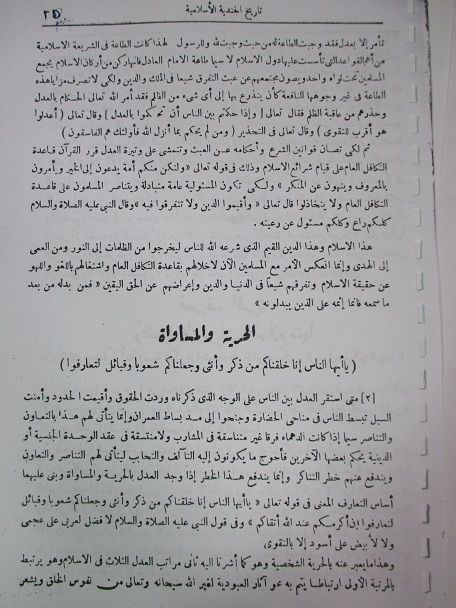 تاريخ الجندية الأسلامية ٢٥
تأمر إلا بعدل فقد وجبت الطاعة له من حيث وجبت لله وللرسول لهذا كانت الطاعة فى الشريعة الاسلامية
من أهم القواعد التى تأسست عليها دول الاسلام لا سيما طاعة الامام العادل فانها ركن من أركان الاسلام يجمع
المسلمين تحت لواء واحد ويصون مجتمعهم من عبث التفرق شيعا فى الملك والدين ولكى لا تصرف مزايا هذه
الطاعة فى غير وجوهها النافعة كأن يتذرع بها إلى أى شىء من الظلم فقد أمر الله تعالى الحكام بالعدل
وحذرهم من عاقبة الظلم فقال تعالى [ وإذا حكمتم بين الناس أن تحكموا بالعدل ] وقال تعالى ( أعدلوا
هو أقرب للتقوى ) وقال تعالى فى التحذير ( ومن لم يحكم بما أنزل الله فأولئك هم الفاسقون )
ثم لكى تصان قوانين الشرع وأحكامه عن العبث وتتمشى على وتيرة العدل قرر القرآن قاعدة
التكافل العام على قيام شرائع الاسلام وذلك فى قوله تعالى «ولتكن منكم أمة يدعون إلى الخير ويأمرون
بالمعروف وينهون عن المنكر » ولكى تكون المسئولية عامة متبادلة ويتناصر المسلمون على قاعدة
التكافل العام ولا يتخاذلوا قال تعالى « وأقيموا الدين ولا تتفرقوا فيه » وقال النبى عليه الصلاة والسلام
كلكم راع وكلكم مسئول عن رعيته .
هذا الاسلام وهذا الدين القيم الذى شرعه الله للناس ليخرجوا من الظلمات إلى النور ومن العمى
إلى الهدى وإنما انعكس الأمر مع المسلمين الآن لاخلالهم بقاعدة التكافل العام واشتغالهم باللغو واللهو
عن حقيقة الاسلام وتفرقهم شيعاً فى الدنيا والدين وإعراضهم عن الحق اليقين « فمن بدله من بعد
ما سمعه فانما إثمه على الذين يبدلونه »
الحرية والمساواة
( ياأيها الناس إنا خلقناكم من ذكر وأنثى وجعلناكم شعوبا وقبائل لتعارفوا )
[٢] متى استقر العدل بين الناس على الوجه الذى ذكرناه وردت الحقوق وأقيمت الحدود وأمنت
السبل تبسط الناس فى مناحى الحضارة وجنحوا إلى مد بساط العمران وإنما يتأتى لهم هذا بالتعاون
والتناصر سيما إذا كانت الدهماء فرقا غير متناسقة فى المشارب ولا متسقة فى عقد الوحدة الجنسية أو
الدينية يحكم بعضها الآخرين فأحوج ما يكونون إليه التآلف والتحابب ليتأتى لهم التناصر والتعاون
ويندفع عنهم خطر التناكر وإنما يندفع هذا الخطر إذا وجد العدل بالحرية والمساواة وبنى عليهما
أساس التعارف المعنى فى قوله تعالى « ياأيها الناس إنا خلقناكم من ذكر وأنثى وجعلناكم شعوبا وقبائل
لتعارفوا إن أكرمكم عند الله أتقاكم » وفى قول النبى عليه الصلاة والسلام لا فضل لعربى على عجمى
ولا لأبيض على أسود إلا بالتقوى
وهذا ما يعبر عنه بالحرية الشخصية وهو كما أشرنا اليه ثانى مراتب العدل الثلاث فى الاسلام وهو يرتبط
بالمرتبة الأولى ارتباطا يتم به محو آثار العبودية لغير الله سبحانه وتعالى من نفوس الخلق ويشعر